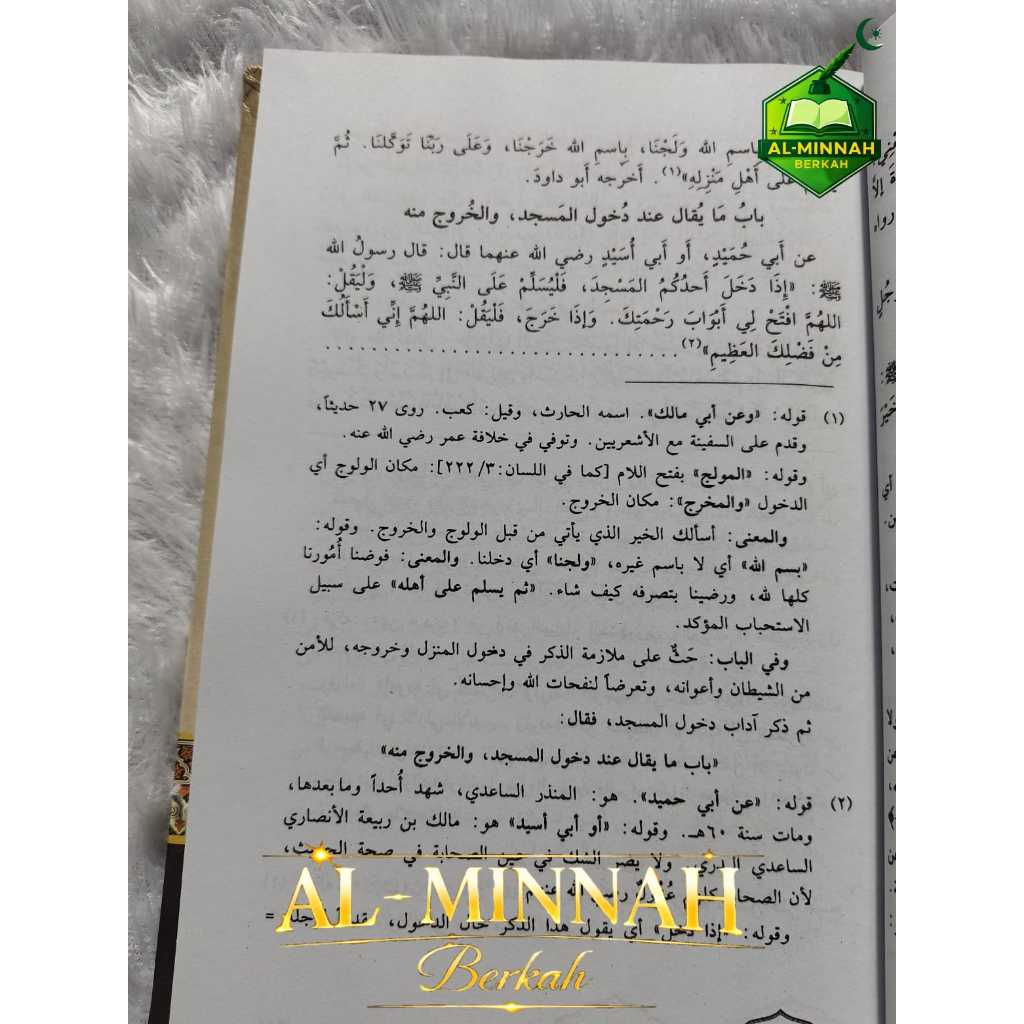 AL-MINNAH
BERKAH
باسمِ الله وَلَجْنَا، بِاسمِ الله خَرَجْنَا، وَعَلَى رَبِّنَا تَوَكَّلنَا. ثُمَّ
عَلَى أَهْلِ مَنْزِلِهِ»(١). أَخرجه أَبو داودَ.
بابُ مَا يُقال عند دُخول المَسجد، والخُروج منه
عن أَبي حُمَيْدٍ، أَو أَبي أُسَيْدٍ رضي الله عنهما قال: قال رسولُ الله
ﷺ: «إِذَا دَخَلَ أَحدُكُمُ المَسْجِدَ، فَلْيُسَلِّمْ عَلَى النَّبِيِّ ﷺ، وَلْيَقُلْ:
اللهُمَّ افْتَحْ لِي أَبْوَابَ رَحْمَتِكَ. وَإِذَا خَرَجَ، فَلْيَقُلْ: اللهمَّ إِنِّي أَسْأَلُكَ
مِنْ فَضْلِكَ العَظِيمِ»(٢)..............................
(١) قوله: «وعن أبي مالك». اسمه الحارث، وقيل: كعب. روى ٢٧ حديثاً،
وقدم على السفينة مع الأشعريين. وتوفي في خلافة عمر رضي الله عنه.
وقوله: «المولج» بفتح اللام [كما في اللسان:٢٢٢/٣]: مكان الولوج أي
الدخول «والمخرج»: مكان الخروج.
والمعنى: أسألك الخير الذي يأتي من قبل الولوج والخروج. وقوله:
«بسم الله» أي لا باسم غيره، «ولجنا» أي دخلنا. والمعنى: فوضنا أُمُورنا
كلها لله، ورضينا بتصرفه كيف شاء. «ثم يسلم على أهله» على سبيل
الاستحباب المؤكد.
وفي الباب: حَثٌّ على ملازمة الذكر في دخول المنزل وخروجه، للأمن
من الشيطان وأعوانه، وتعرضاً لنفحات الله وإحسانه.
ثم ذكر آداب دخول المسجد، فقال:
«باب ما يقال عند دخول المسجد، والخروج منه»
(٢) قوله: «عن أبي حميد». هو: المنذر الساعدي، شهد أُحداً وما بعدها،
ومات سنة ٦٠هـ. وقوله: «أو أبي أسيد» هو: مالك بن ربيعة الأنصاري
الساعدي البدري. ولا يضر الشك في عين الصحابة في صحة الحديث،
لأن الصحابة كلهم عُدُولٌ رضي الله عنهم
وقوله: «إذا دخل» أي يقول هذا الذكر حال الدخول، =
AL-MINNAH
Berkah